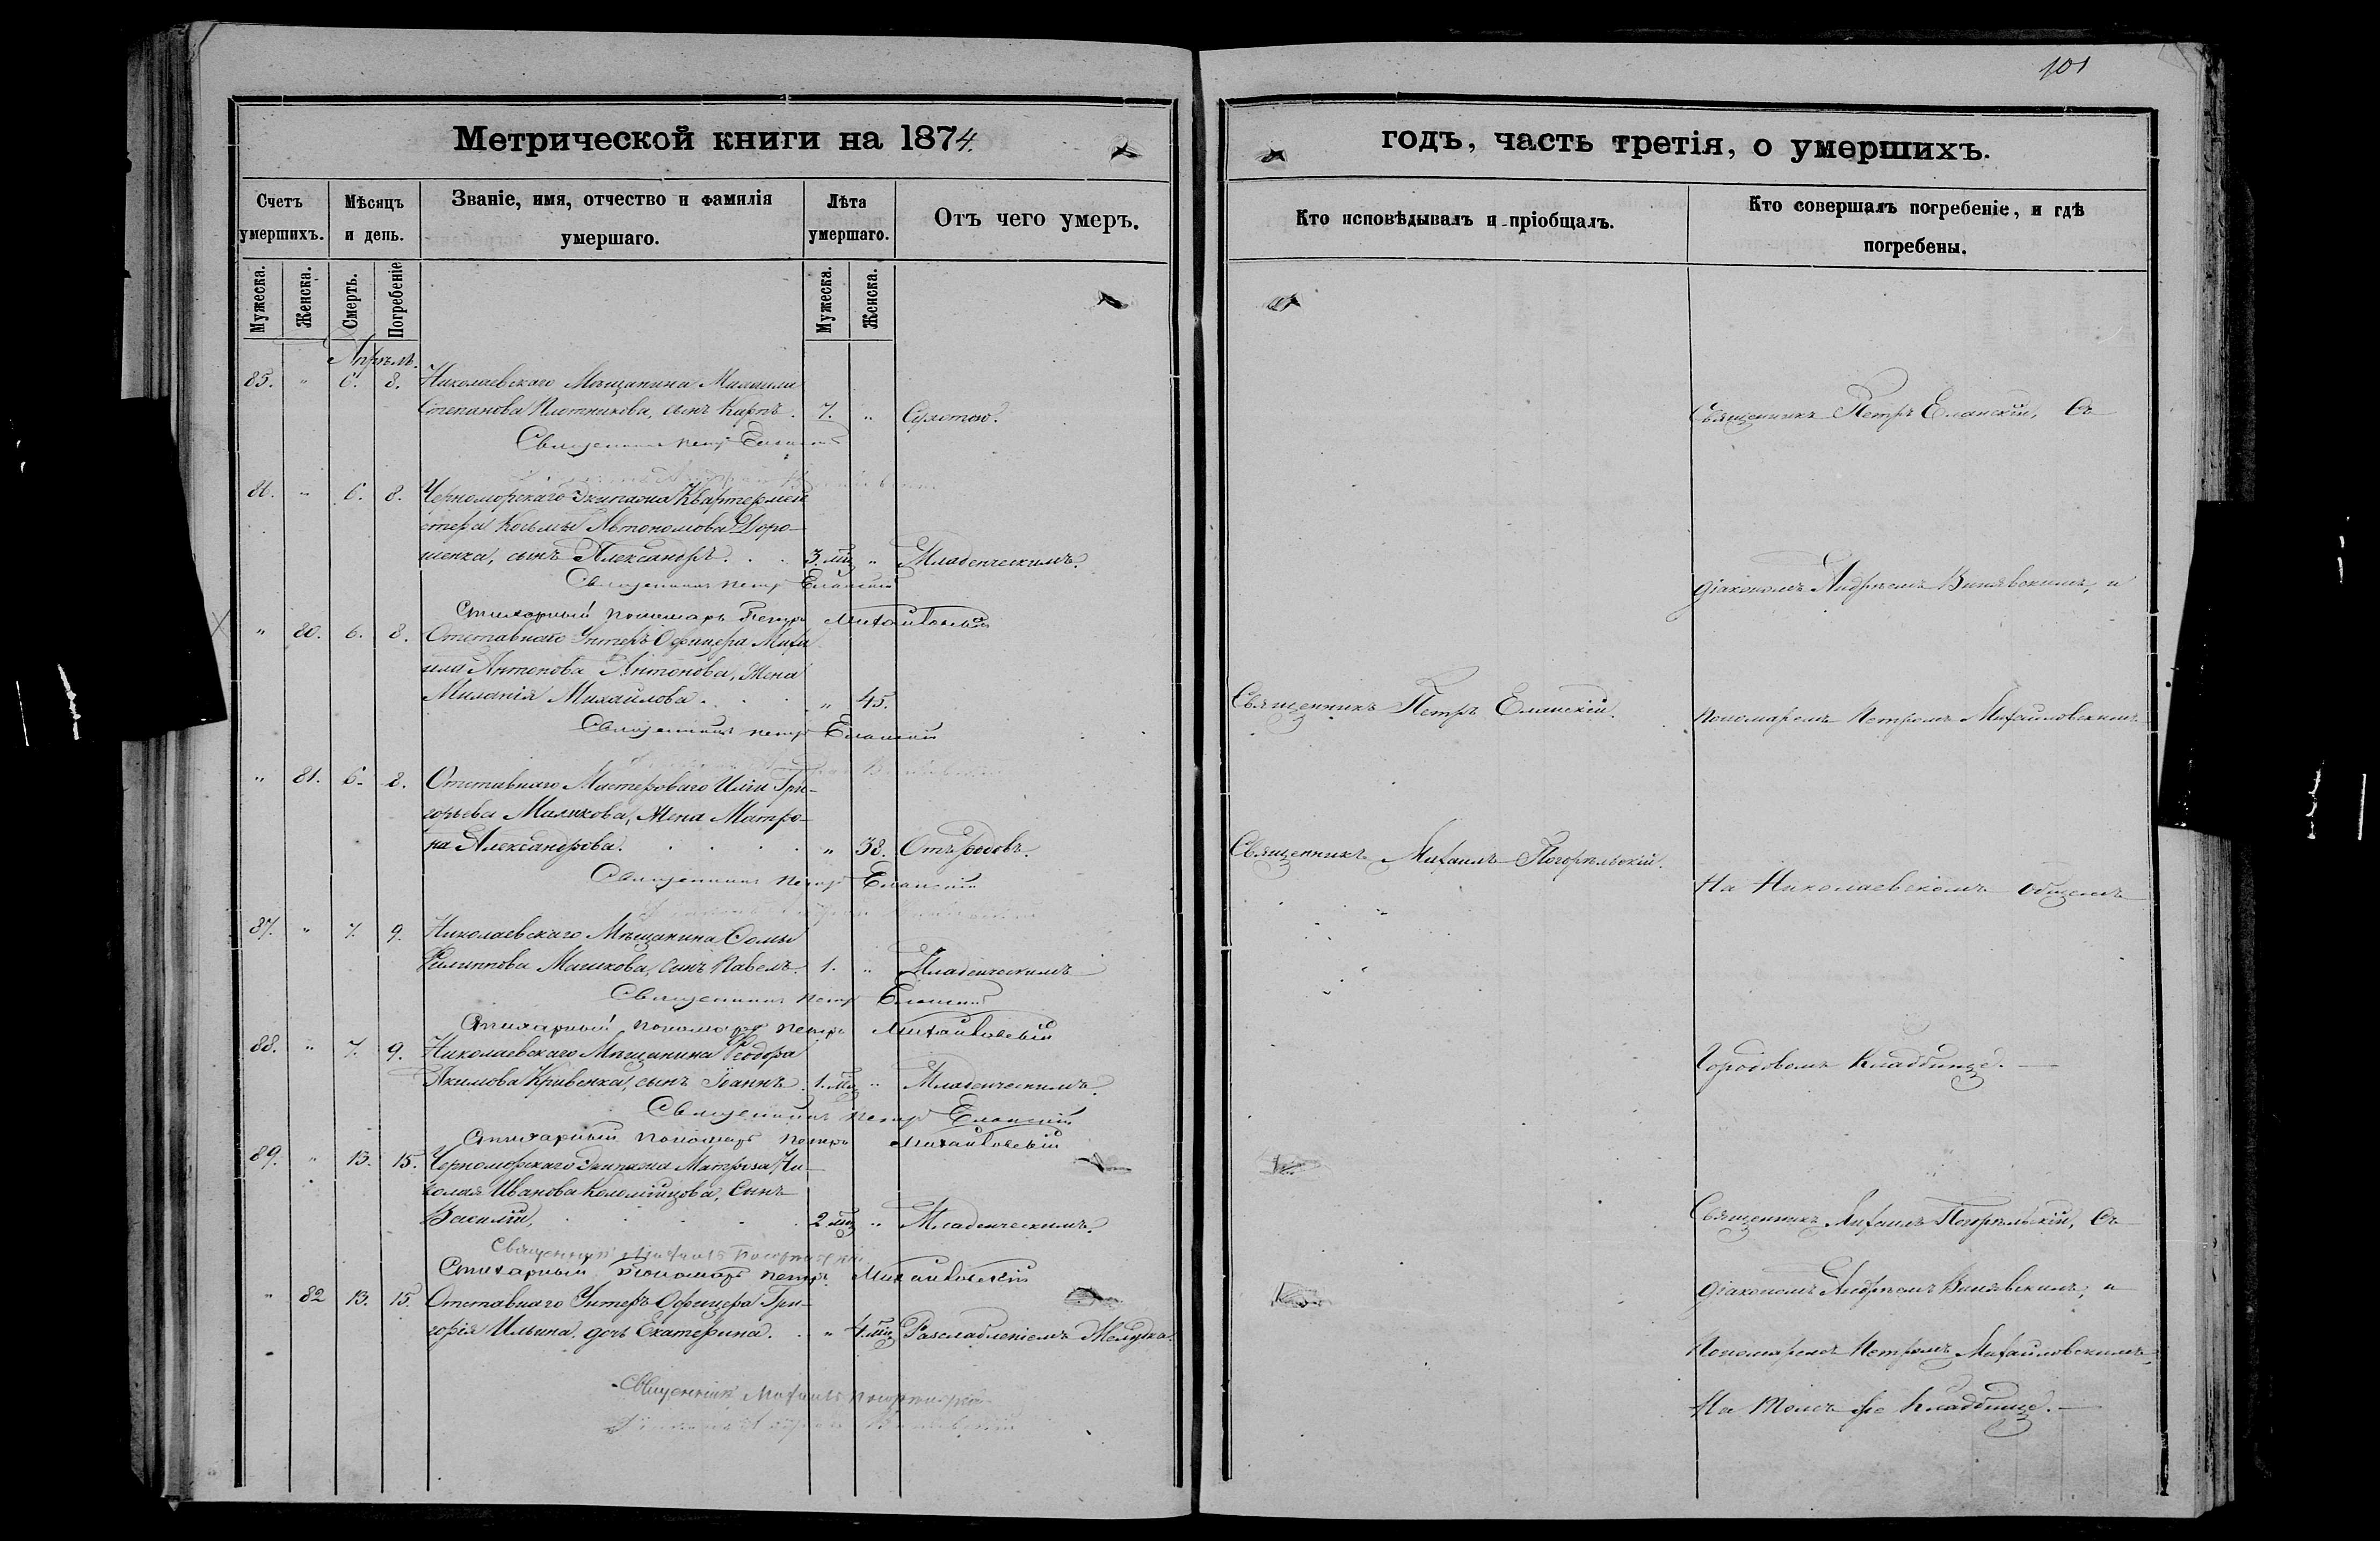 101
Метрической книги на 1874.
годъ, часть третія, о умершихъ.
Счетъ умершихъ.
Мѣсяцъ и день.
Званіе, имя, отчество и фамилія умершаго.
Лѣта умершаго.
Отъ чего умеръ.
Кто исповѣдывалъ и пріобщалъ.
Кто совершалъ погребеніе, и гдѣ погребены.
Мужеска.
Женска.
Смерть.
Погребеніе
Мужеска.
Женска.
Апрѣль.
85. " 6. 8. Николаевскаго Мѣщанина Михаила
Степанова Плотникова, сынъ Карпъ. 7. " Сухотою.
Священникъ Петръ Еланскій
86. " 6. 8. Черноморскаго Экипажа Квартермей
стера Косьмы Автономова Доро-
шенка, сынъ Александръ. 3. мц " Младенческимъ.
Священникъ Петръ Еланскій
Стихарный пономарь Петръ Михайловскій
" 80. 6. 8. Отставнаго Унтеръ Офицера Миха
ила Антонова Антонова, Жена
Миланія Михайлова. " 45.
Священникъ Петръ Еланскій
" 81. 6. 8. Отставнаго Мастероваго Ильи Гри-
горьева Маликова, Жена Матро-
на Александрова. " 38. Отъ родовъ.
Священникъ Петръ Еланскій
87. " 7. 9. Николаевскаго Мѣщанина Ѳомы
Филиппова Машкова, сынъ Павелъ. 1. " Младенческимъ
Священникъ Петръ Еланскій
Стихарный пономарь Петръ Михайловскій
88. " 7. 9. Николаевскаго Мѣщанина Ѳеодора
Якимова Кривенка, сынъ Іоаннъ. 1. мц " Младенческимъ.
Священникъ Петръ Еланскій
Стихарный пономарь Петръ Михайловскій
89. " 13. 15. Черноморскаго Экипажа Матроза Ни-
колая Иванова Коломійцова, Сынъ
Василій, 2 мц " Младенческимъ.
Священникъ Михаилъ Погорѣльскій
Стихарный пономарь Петръ Михайловскій
" 82 13. 15. Отставнаго Унтеръ-Офицера Гри-
горія Ильина, дочь Екатерина. " 4 мц Разслабленіемъ Желудка.
Священникъ Михаилъ Погорѣльскій
Священникъ Петръ Еланскій.
Священникъ Михаилъ Погорѣльскій.
Священникъ Петръ Еланскій, Съ
діакономъ Андреемъ Винявскимъ, и
пономаремъ Петромъ Михайловскимъ
На Николаевскомъ общемъ
Городовомъ Кладбищѣ.
Священникъ Михаилъ Погорѣльскій, Съ
діакономъ Андреемъ Винявскимъ, и
Пономаремъ Петромъ Михайловскимъ,
На томъ же Кладбищѣ.